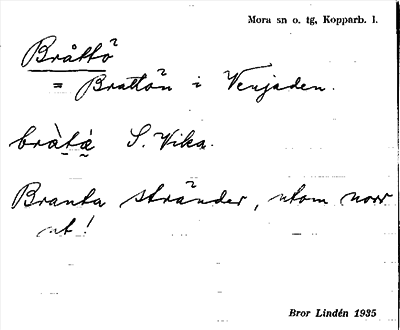 Mora sn o. tg, Kopparb. l.
Bråttö
= Brattön i Venjaden.
bràtä S. Vika.
Branta stränder, utom norr
ut!
Bror Lindén 1935